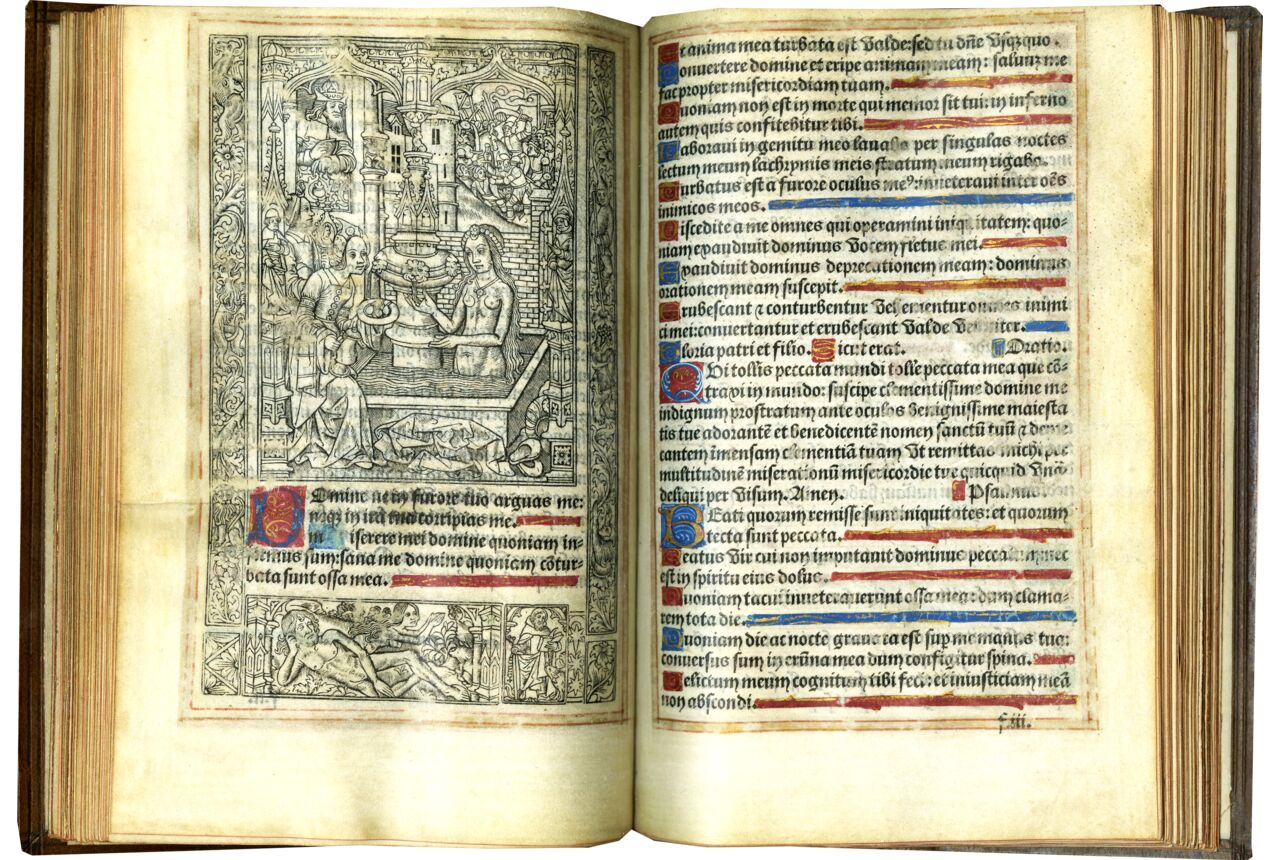 Omine ne in furore tuo arguas me:
neqz in ira tua corripias me.
m iserere mei domine quoniam in-
firmus sum: sana me domine quoniam cōtur-
bata sunt ossa mea.
Et anima mea turbata est valde: sed tu dñe vsqzquo.
Convertere domine et eripe animam meam: saluū me
fac propter misericordiam tuam.
Quoniam non est in morte qui memor sit tui: in inferno
autem quis confitebitur tibi.
Laboraui in gemitu meo lauabo per singulas noctes
lectum meum lachrymis meis stratum meum rigabo.
Turbatus est a furore oculus meꝰ: inueteraui inter oēs
inimicos meos.
Discedite a me omnes qui operamini iniquitatem: quo-
niam exaudiuit dominus vocem fletus mei.
Exaudiuit dominus deprecationem meam: dominus
orationem meam suscepit.
Erubescant ⁊ conturbentur vehementer omnes inimi
ci mei: conuertantur et erubescant valde velociter.
Gloria patri et filio. Sicut erat. Oratio.
QVi tollis peccata mundi tolle peccata mea que cō-
traxi in mundo: suscipe clementissime domine me
indignum prostratum ante oculos benignissime maiesta
tis tue adorantē et benedicentē nomen sanctū tuū ⁊ depre
cantem īmensam clementiā tuam vt remittas michi per
multitudinē miserationū misericordie tue quicquid vnqȝ
deliqui per visum. Amen. Psalmus
BEati quorum remisse sunt iniquitates: et quorum
tecta sunt peccata.
Beatus vir cui non imputauit dominus peccatum nec
est in spiritu eius dolus.
Quoniam tacui inueterauerunt ossa mea: dum clama-
rem tota die.
Quoniam die ac nocte grauata est sup me manus tua:
conuersus sum in erūna mea dum configitur spina.
Delictum meum cognitum tibi feci: et iniusticiam meā
non abscondi.
f.iii.